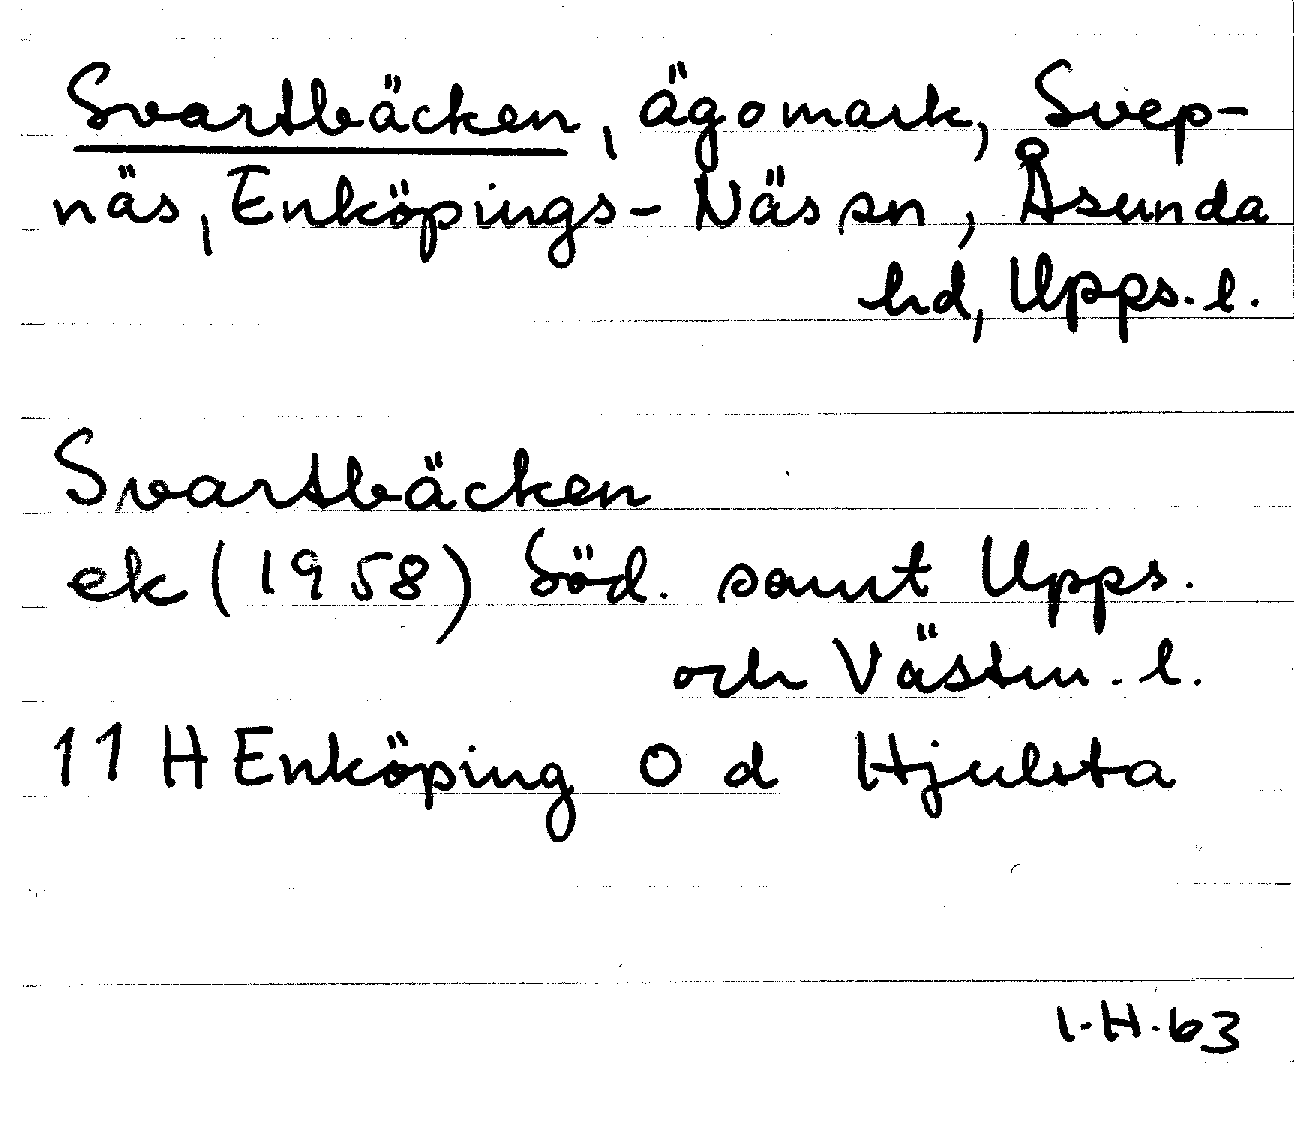 Svartbäcken, ägomark, Svep-
näs, Enköpings-Näs sn, Åsunda
hd, Upps. l.
Svartbäcken
ek (1958) Söd. samt Upps.
och Västm. l.
11 H Enköping 0 d Hjulsta
I.H.63